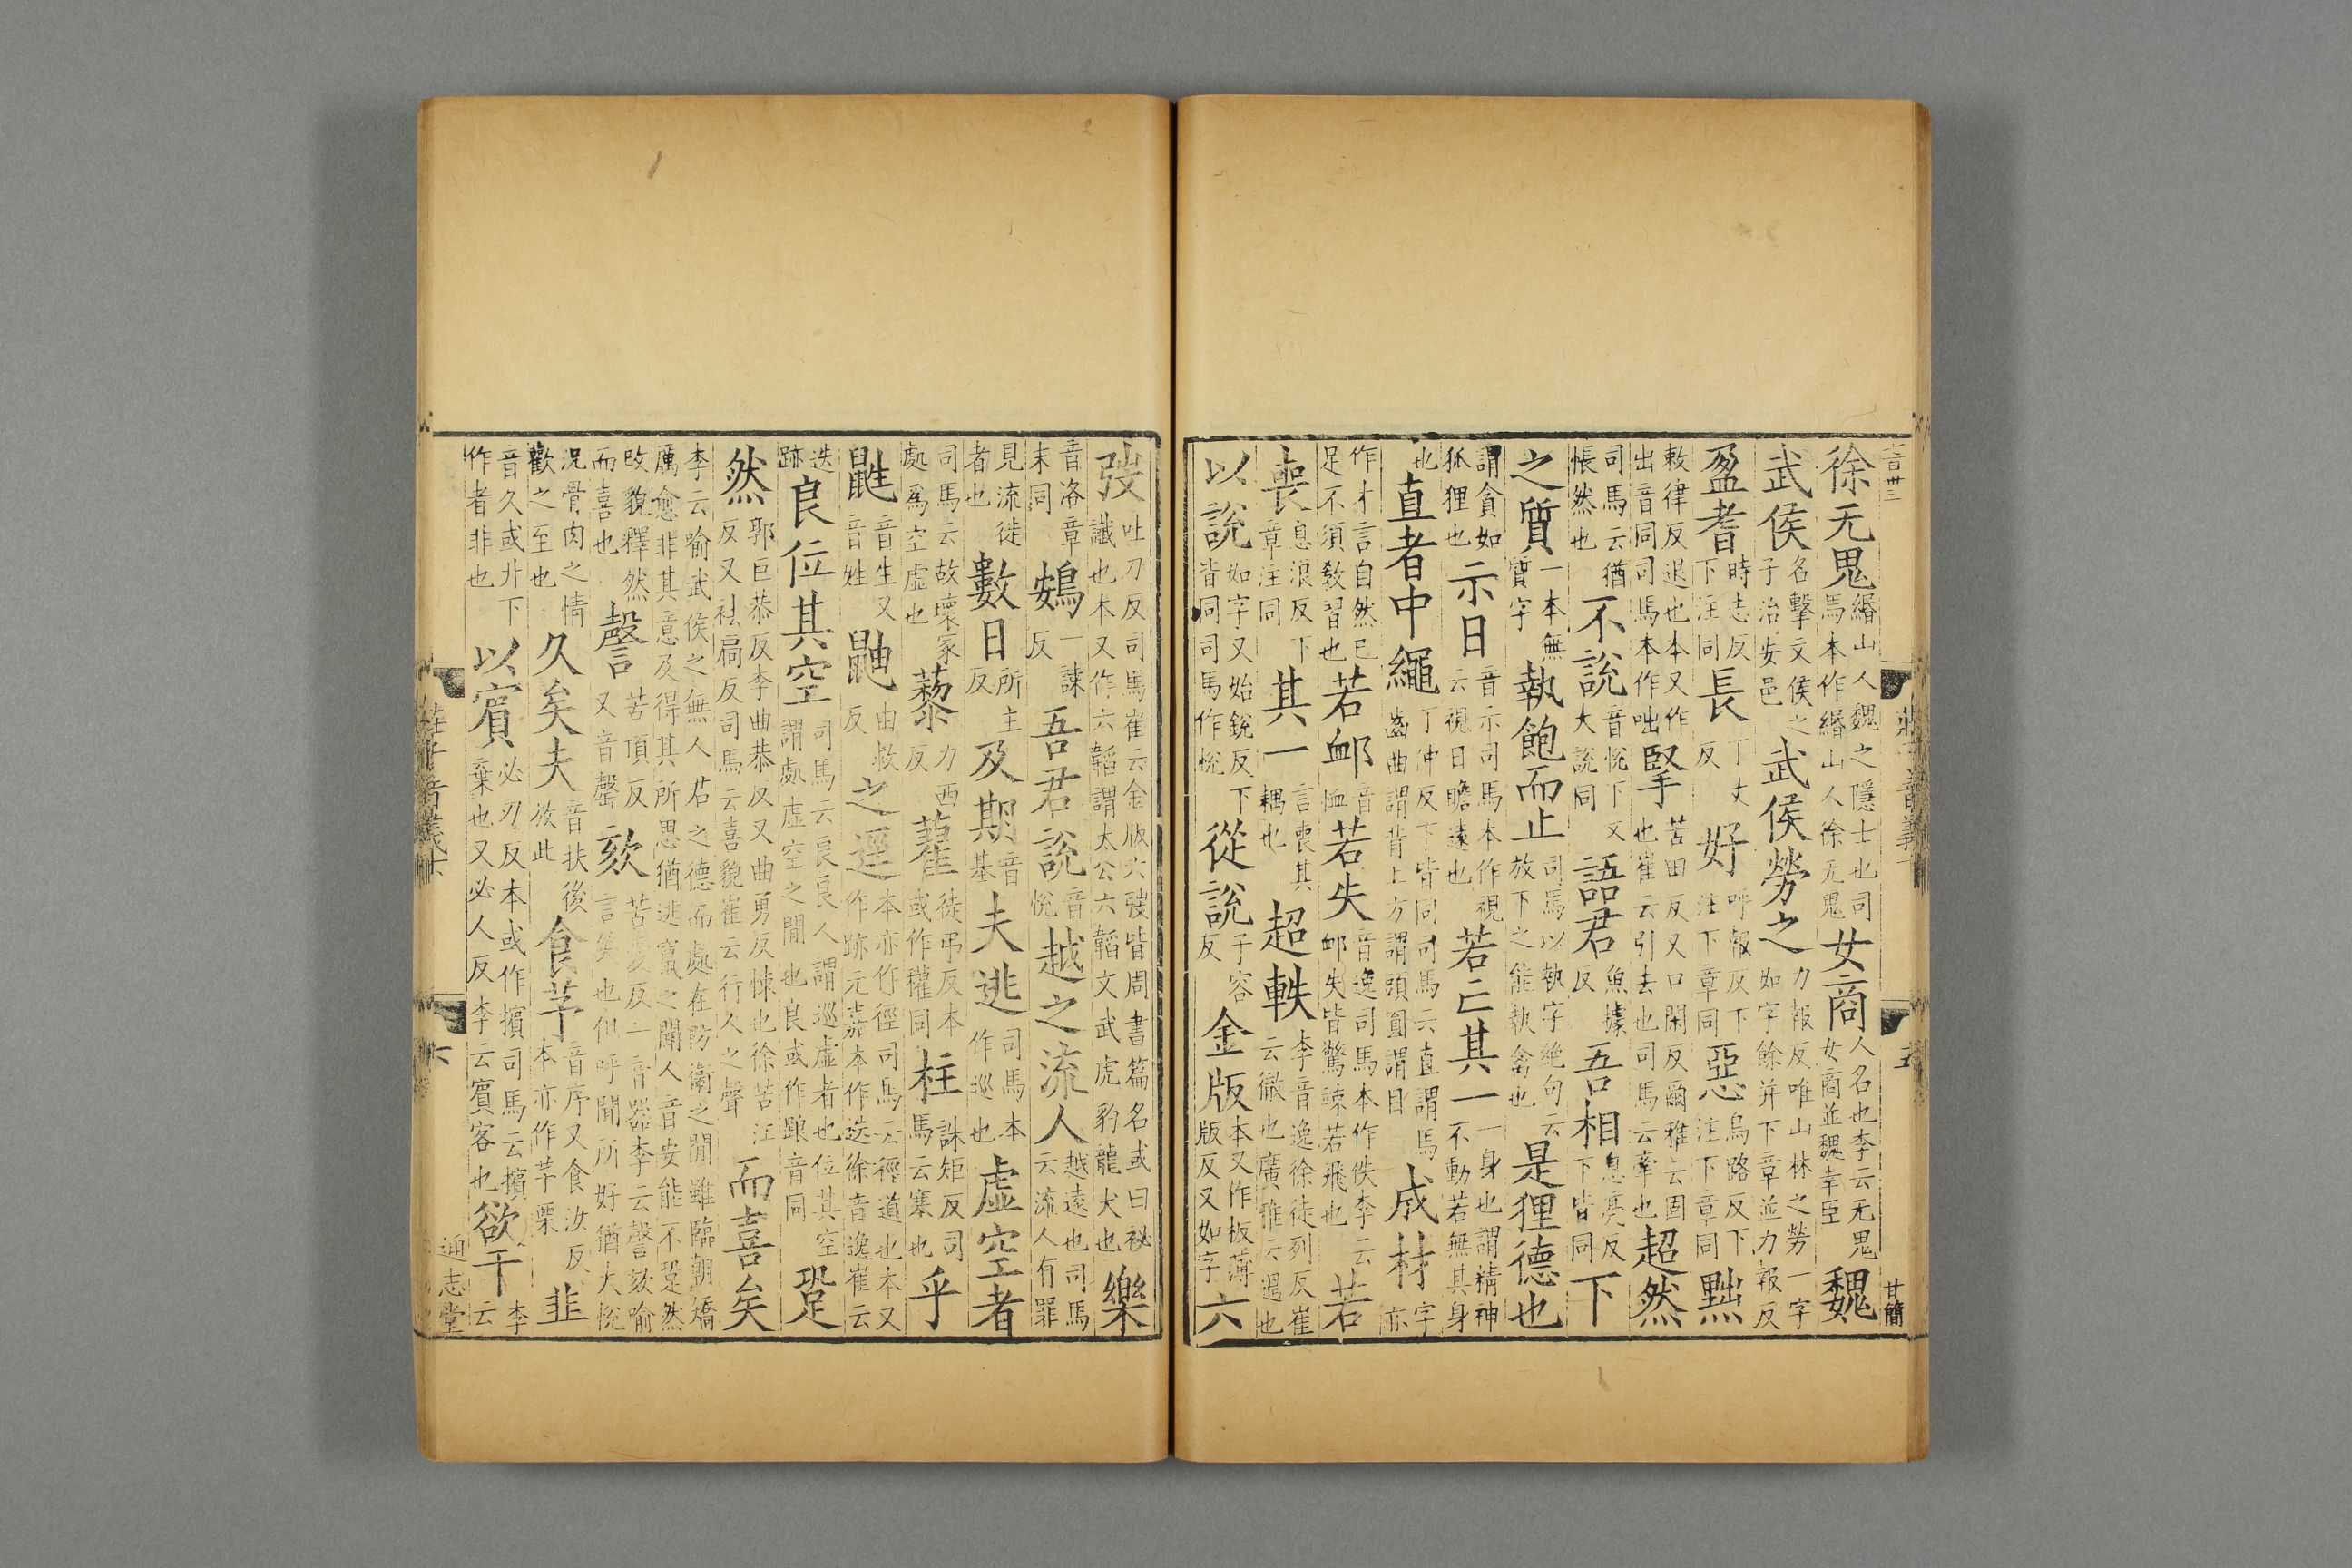 徐无鬼緡山人魏之隱士也司馬本作緡山人徐无鬼女商人名也李云无鬼女商並魏幸臣魏
武侯名擊文侯之子治安邑武侯勞之力報反唯山林之勞一字如字餘并下章並力報反
盈耆時志反下注同長丁丈反好呼報反下注下章同惡烏路反下注下章同黜
敕律反退也本又作出音同司馬本作咄掔苦田反又口閑反爾雅云固也崔云引去也司馬云牽也超然
司馬云猶悵然也不說音悅下文大說同語君魚據反吾相息亮反下皆同下
之質一本無質字執飽而止司馬以執字絕句云放下之能執禽也是狸德也
謂貪如狐狸也示日音示司馬本作視云視日瞻遠也若亡其一一身也謂精神不動若無其身
也直者中繩丁仲反下皆同司馬云直謂馬齒曲謂背上方謂頭圓謂目成材字亦
作才言自然已足不須教習也若卹音恤若失音逸司馬本作佚李云卹失皆驚竦若飛也若
喪息浪反下章注同其一言喪其耦也超軼李音逸徐徒列反崔云徹也廣雅云過也
以說如字又始銳反下皆同司馬作悅從說子容反金版本又作板薄版反又如字六
弢吐刀反司馬崔云金版六弢皆周書篇名或曰祕讖也本又作六韜謂太公六韜文武虎豹龍犬也樂
音洛章末同鴳一諫反吾君說音悅越之流人越遠也司馬云流人有罪
見流徙者也數日所主反及期音基夫逃司馬本作巡也虛空者
司馬云故壞冢處爲空虛也藜力西反藋徒弔反本或作欋同柱誅矩反司馬云塞也乎
鼪音生又音姓鼬由救反之逕本亦作徑司馬云徑道也本又作跡元嘉本作迭徐音逸崔云
迭跡良位其空司馬云良良人謂巡虛者也位其空謂處虛空之閒也良或作踉音同跫
然郭巨恭反李曲恭反又曲勇反悚也徐苦江反又袪扃反司馬云喜貌崔云行人之聲而喜矣
李云喻武侯之無人君之德而處在防衛之閒雖臨朝矯厲愈非其意及得其所思猶逃竄之聞人音安能不跫然
改貌釋然而喜也謦苦頂反又音罄欬苦愛反一音器李云謦欬喻言笑也但呼聞所好猶大悅
況骨肉之情歡之至也久矣夫音扶後放此食芧音序又食汝反本亦作芧栗韭
音久或廾下作者非也以賓必刃反本或作擯司馬云擯棄也又必人反李云賓客也欲干李云
莊子音義下
六
通志堂